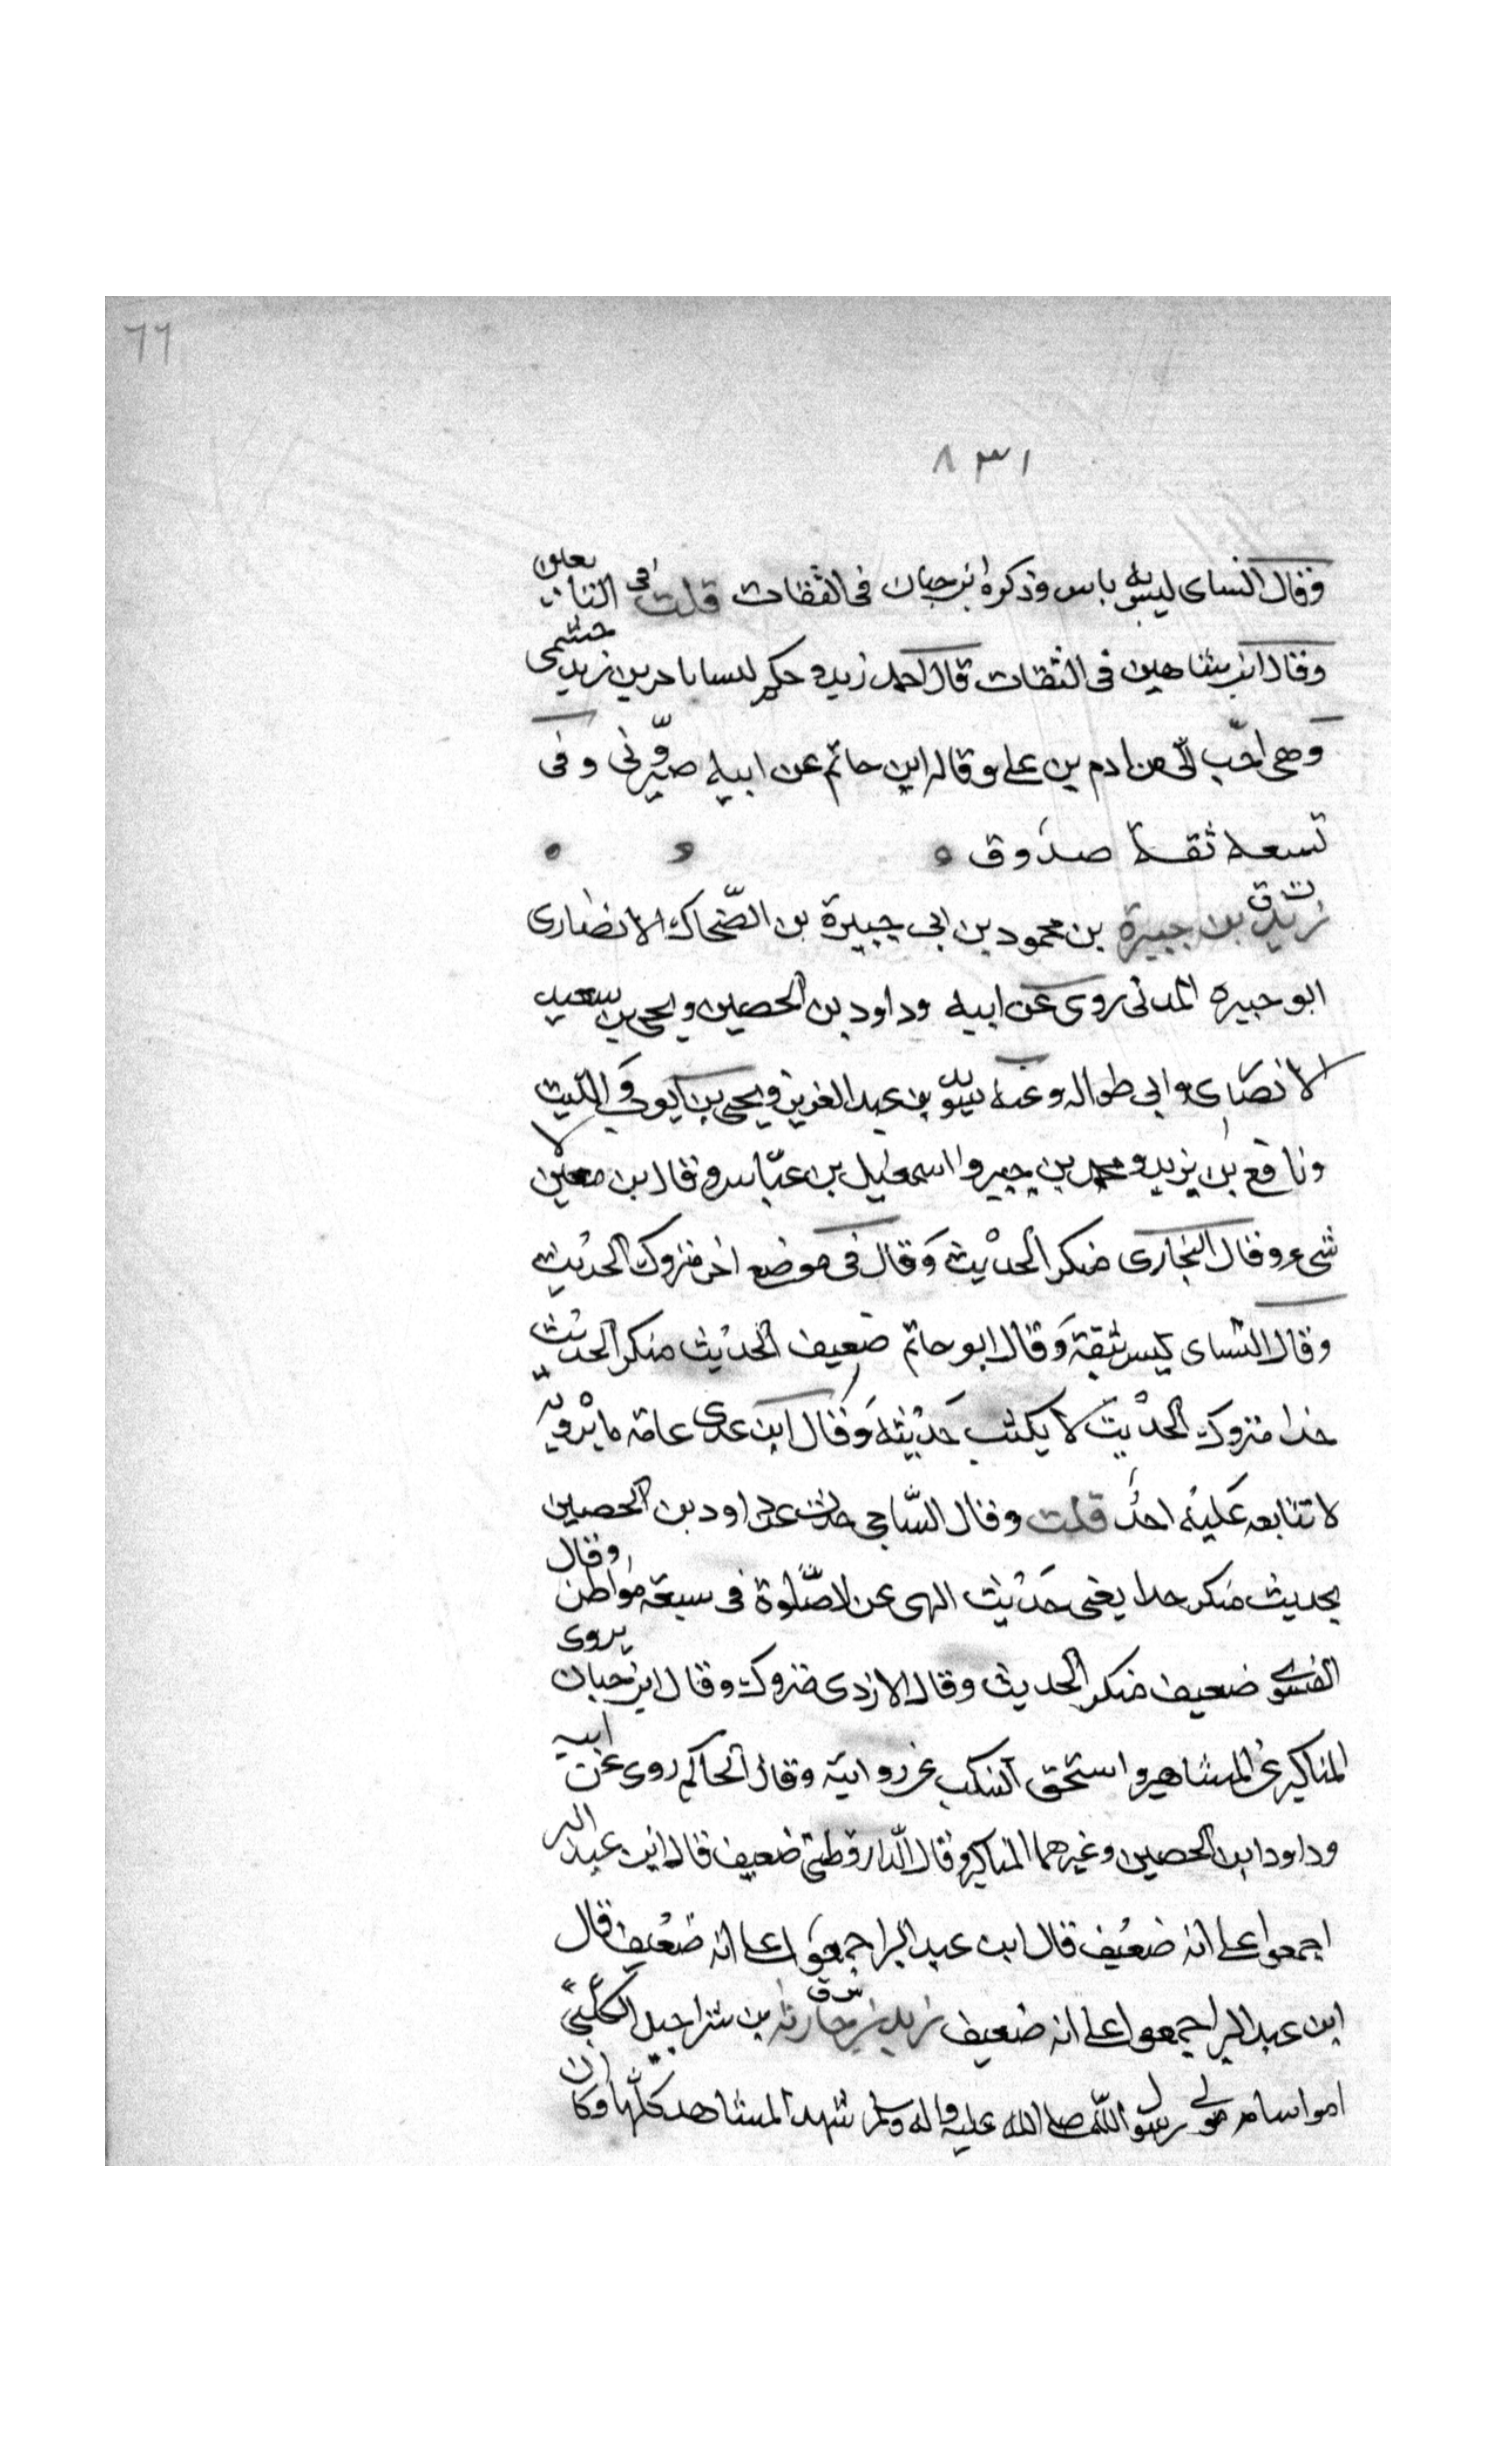 ٦٦
٨٣١
وقال النساى ليس به باس وذكره ابن حبان فى الثقات قلت فى التابعين
وقال ابن شاهين فى الثقات قال احمد زيد حكيم زيد جشمى
وهى احب الى من ادم بن على وقاله ابن حاتم عن ابيه وفى
تسعه ثقة صدوق
زيد بن جبيرة بن محمود بن ابى جبيرة بن الضحاك الانصارى
ت ق
ابو جبيره المدنى روى عن ابيه وداود بن الحصين ويحيى بن سعيد
الانصارى وابى طواله وعنه سويد بن عبد العزيز ويحيى بن ايوب والليث
ونافع بن يزيد ومحمد بن جبير واسمعيل بن عياس وقال بن معين لا
شىء وقال البخارى منكر الحديث وقال فى موضع اخر متروك الحديث
وقال النساى ليس بثقة وقال ابو حاتم ضعيف الحديث منكر الحديث
جدا متروك الحديث لا يكتب حديثه وقال ابن عدى عامة ما يرويه
لا تتابعه عليه احد قلت وقال الساجى حدث عن داود بن الحصين
بحديث منكر جدا يعنى حديث النهى عن الصلوة فى سبعة مواطن وقال
الفسوى ضعيف منكر الحديث وقال الازدى متروك وقال ابن حبان يروى
المناكير عن المشاهير واستحق التنكب عن روايته وقال الحاكم روى عن ابيه
وداود ابن الحصين وغيرهما المناكير وقال الدارقطنى ضعيف قال ابن عبد البر
اجمعوا على انه ضعيف قال ابن عبد البر اجمعوا على انه ضعيف قال
ابن عبد البر اجمعوا على انه ضعيف زيد بن حارثه بن شراحيل الكلبى
س ق
اموا سامه مولى رسول الله صلى الله عليه واله وسلم شهد المشاهد كلها وكان